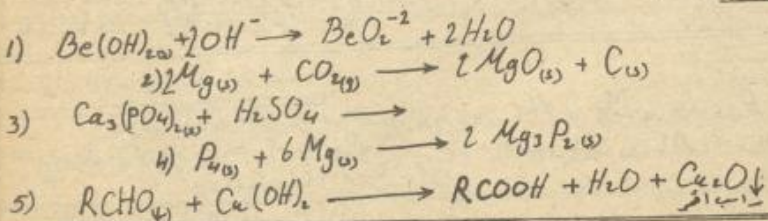 1) Be(OH)₂₍ₛ₎ + 2OH⁻ ⟶ BeO₂⁻² + 2H₂O
2) 2Mg₍ₛ₎ + CO₂₍g₎ ⟶ 2MgO₍ₛ₎ + C₍ₛ₎
3) Ca₃(PO₄)₂₍ₛ₎ + H₂SO₄ ⟶
4) P₄₍ₛ₎ + 6Mg₍ₛ₎ ⟶ 2Mg₃P₂₍ₛ₎
5) RCHO + Cu(OH)₂ ⟶ RCOOH + H₂O + Cu₂O↓